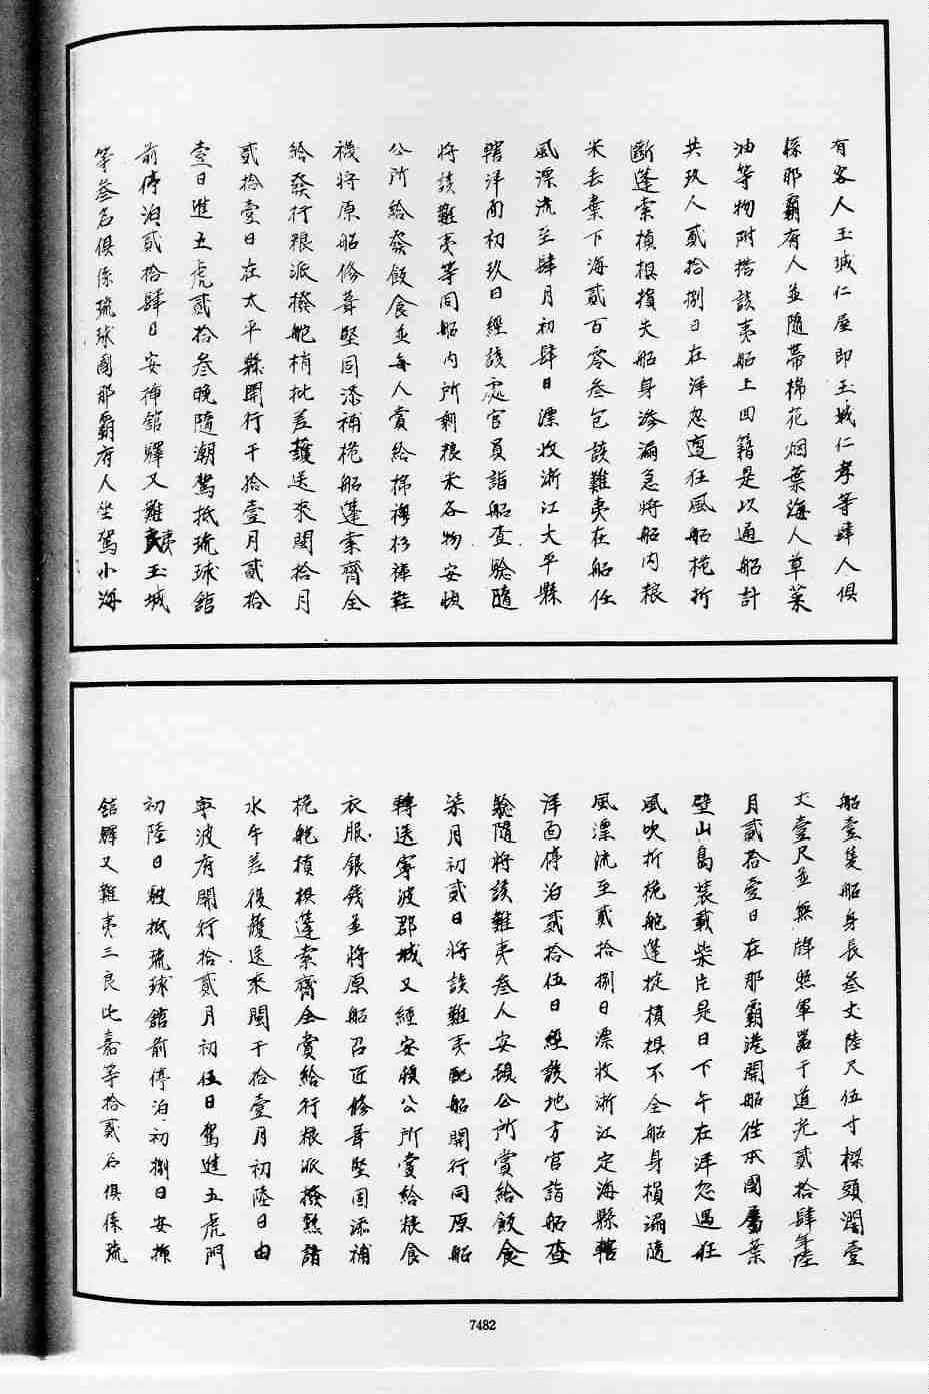 有客人玉城仁屋即玉城仁孝等肆人俱
係那霸府人並隨帶棉花烟葉海人草菜
油等物附搭該夷船上回籍是以通船計
共玖人貳拾捌日在洋忽遭狂風船桅折
斷蓬索槓椇損失船身滲漏急將船內粮
米丟棄下海貳百零叁包該難夷在船任
風漂流至肆月初肆日漂收浙江太平縣
轄洋面初玖日經該處官員詣船查驗隨
將該難夷等同船內所剩粮米各物安頓
公所給發飯食並每人賞給棉襖衫褲鞋
襪將原船修葺堅固添補桅船蓬索齊全
給發行粮派撥舵梢批差護送來閩拾月
貳拾壹日在太平縣開行于拾壹月貳拾
壹日進五虎貳拾叁晚隨潮駕抵琉球館
前停泊貳拾肆日安揷館驛又難夷玉城
等叁名俱係琉球國那霸府人坐駕小海
船壹隻船身長叁丈陸尺伍寸樑頭濶壹
丈壹尺並無牌照軍器于道光貳拾肆年陸
月貳拾壹日在那霸港開船徃本國屬葉
壁山島裝載柴片是日下午在洋忽遇狂
風吹折桅舵蓬椗槓椇不全船身損漏隨
風漂流至貳拾捌日漂收浙江定海縣轄
洋面停泊貳拾伍日經該地方官詣船查
驗隨將該難夷叁人安頓公所賞給飯食
柒月初貳日將該難夷配船開行同原船
轉送寧波郡城又經安頓公所賞給粮食
衣服銀錢並將原船召匠修葺堅固添補
桅舵槓椇蓬索齊全賞給行粮派撥熟諳
水午差後護送來閩于拾壹月初陸日由
寧波府開行拾貳月初伍日駕進五虎門
初陸日駛抵琉球館前停泊初捌日安揷
館驛又難夷三良比嘉等拾貳名俱係琉
7482